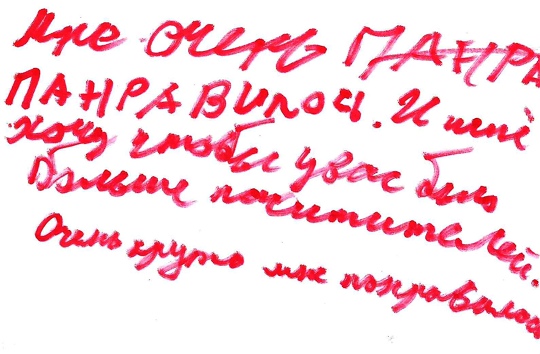 Мне очень ПАНРА
ПАНРАВИЛОСЬ. И ишё
хочу чтобы у вас было
больше поситителей.
Очень круто мне понравилось